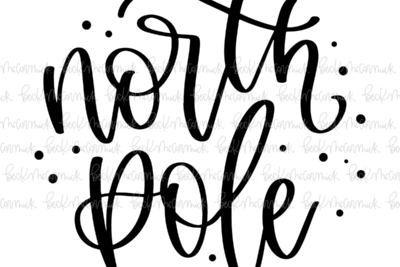 north
pole